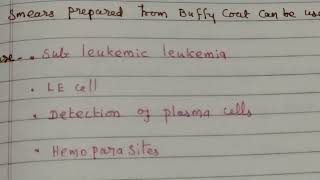 Smears prepared from Buffy Coat can be
• Sub leukemic leukemia
• LE cell
• Detection of plasma cells
• Hemoparasites